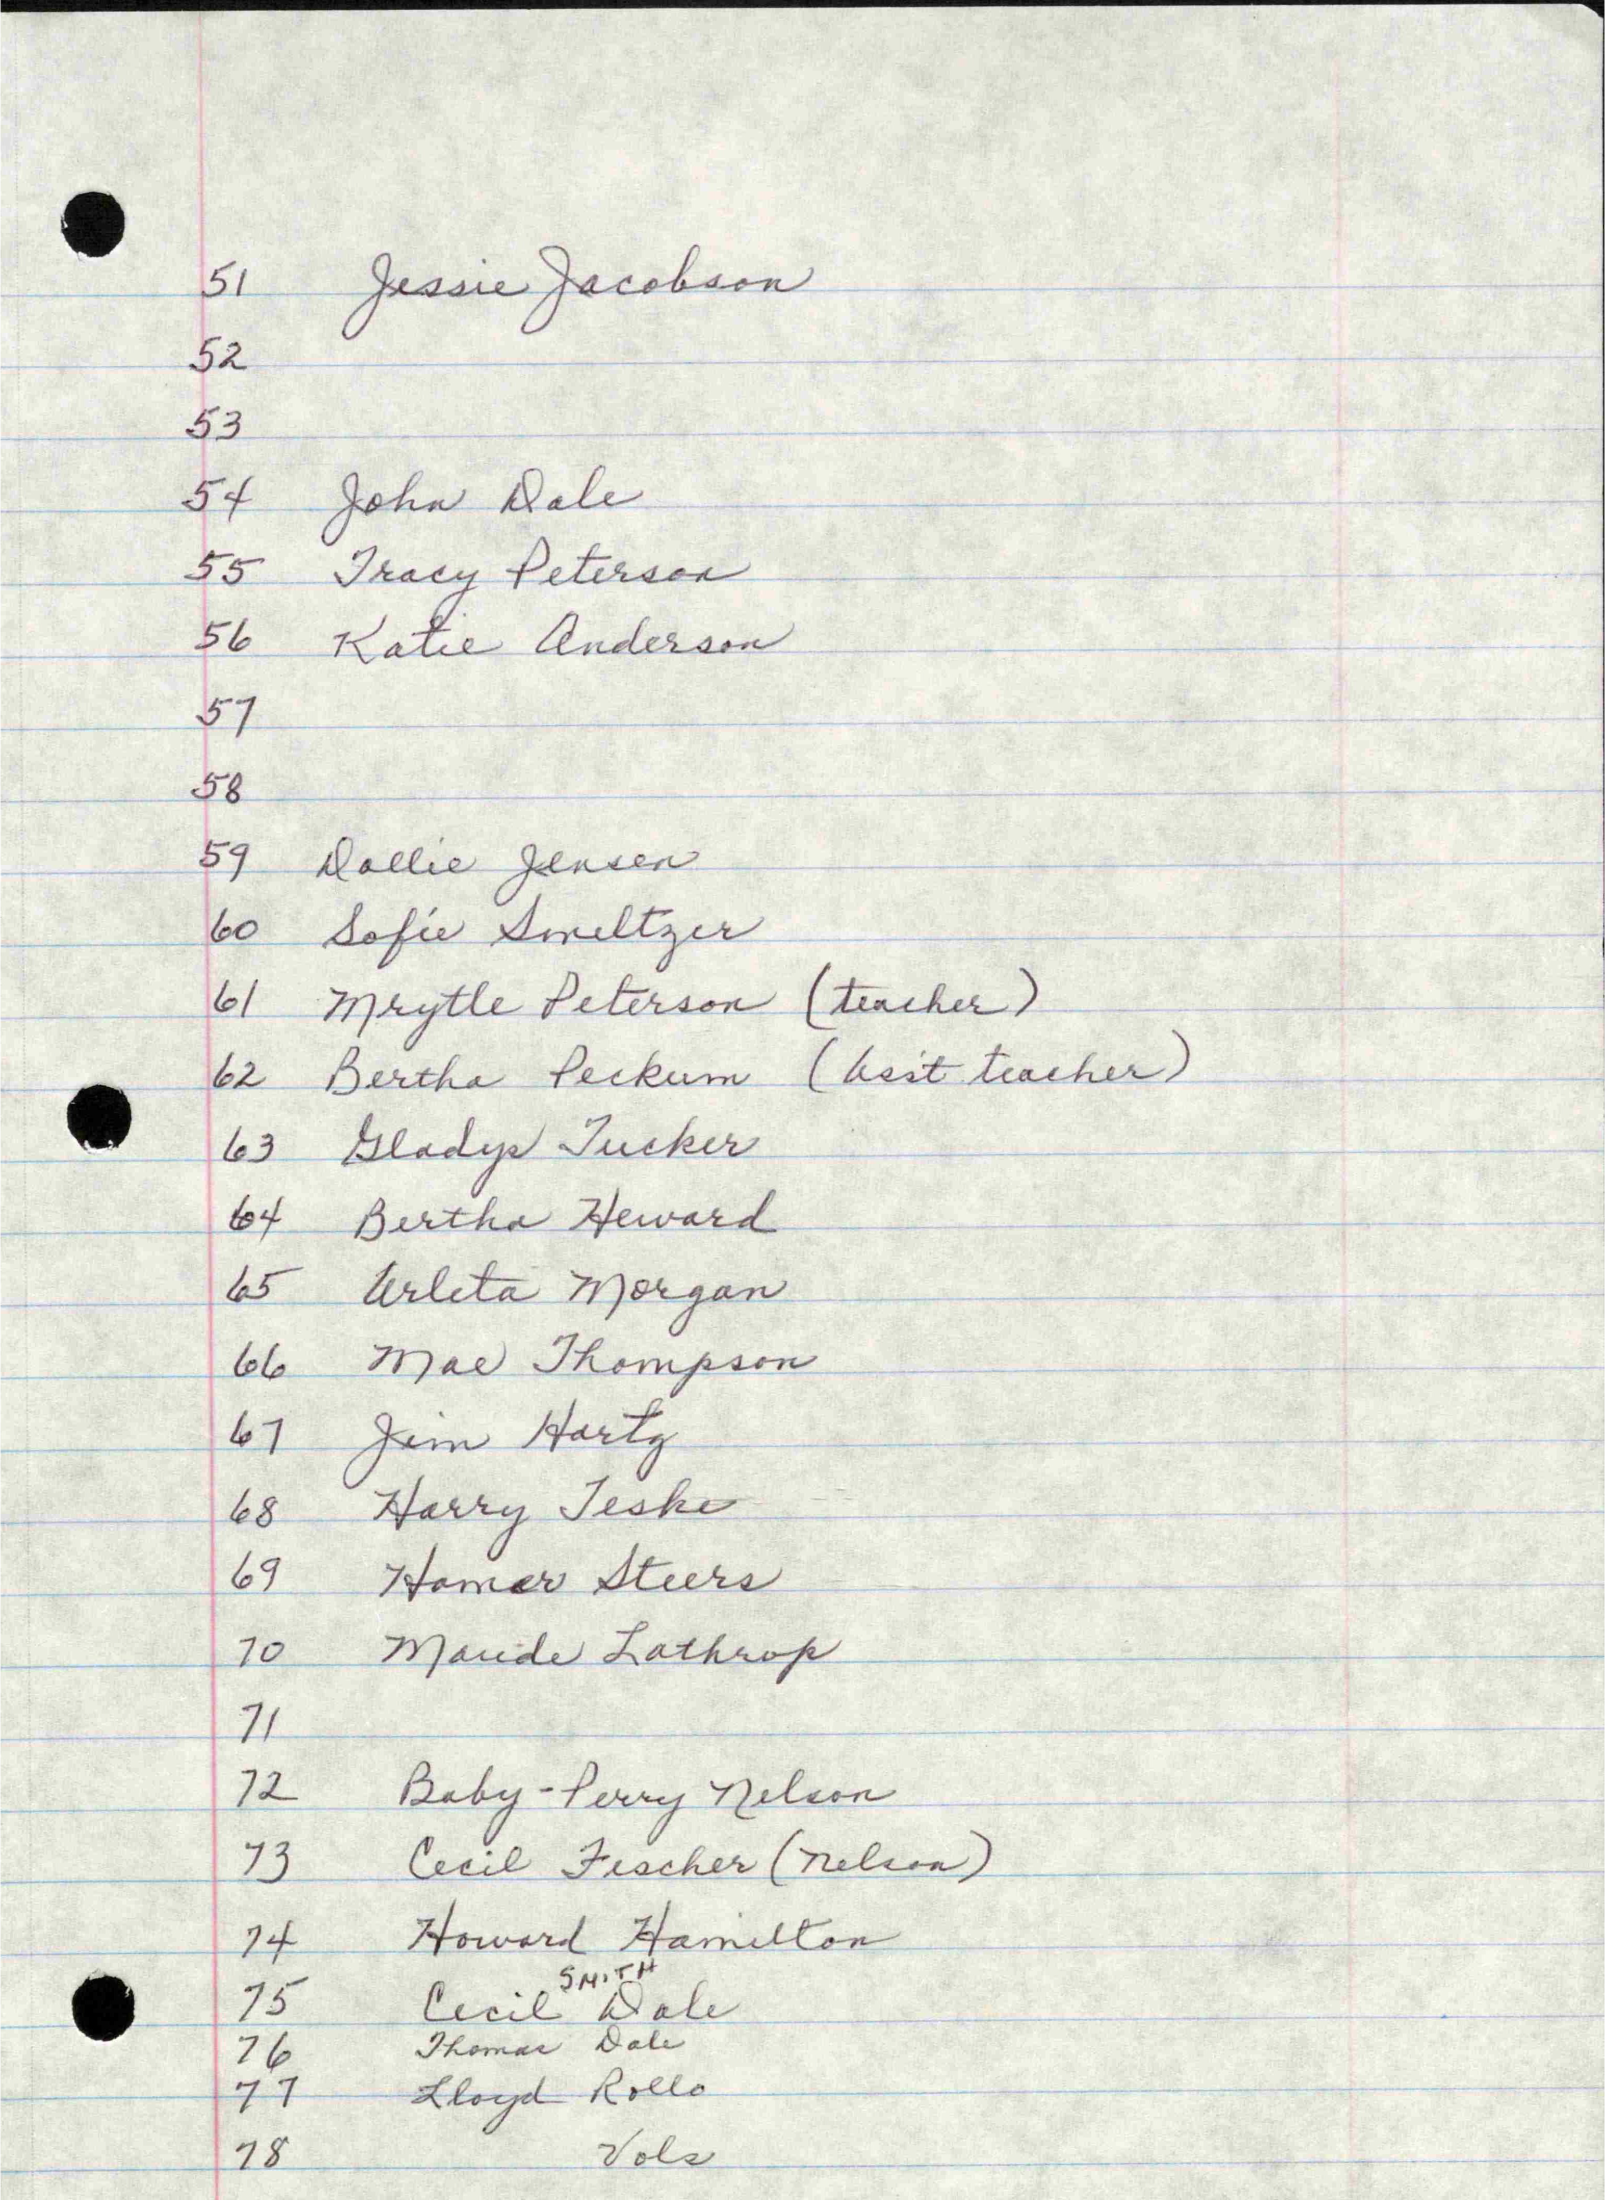 51 Jessie Jacobson
52
53
54 John Dale
55 Tracy Peterson
56 Katie Anderson
57
58
59 Dollie Jensen
60 Sofie Smeltzer
61 Mrytle Peterson (teacher)
62 Bertha Peckum (Ass't teacher)
63 Gladys Tucker
64 Bertha Heward
65 Arleta Morgan
66 Mae Thompson
67 Jim Hartz
68 Harry Teske
69 Homer Steers
70 Maude Lathrop
71
72 Baby-Perry Nelson
73 Cecil Fischer (Nelson)
74 Howard Hamilton
SMITH
75 Cecil Dale
76 Thomas Dale
77 Lloyd Rollo
78 Vols